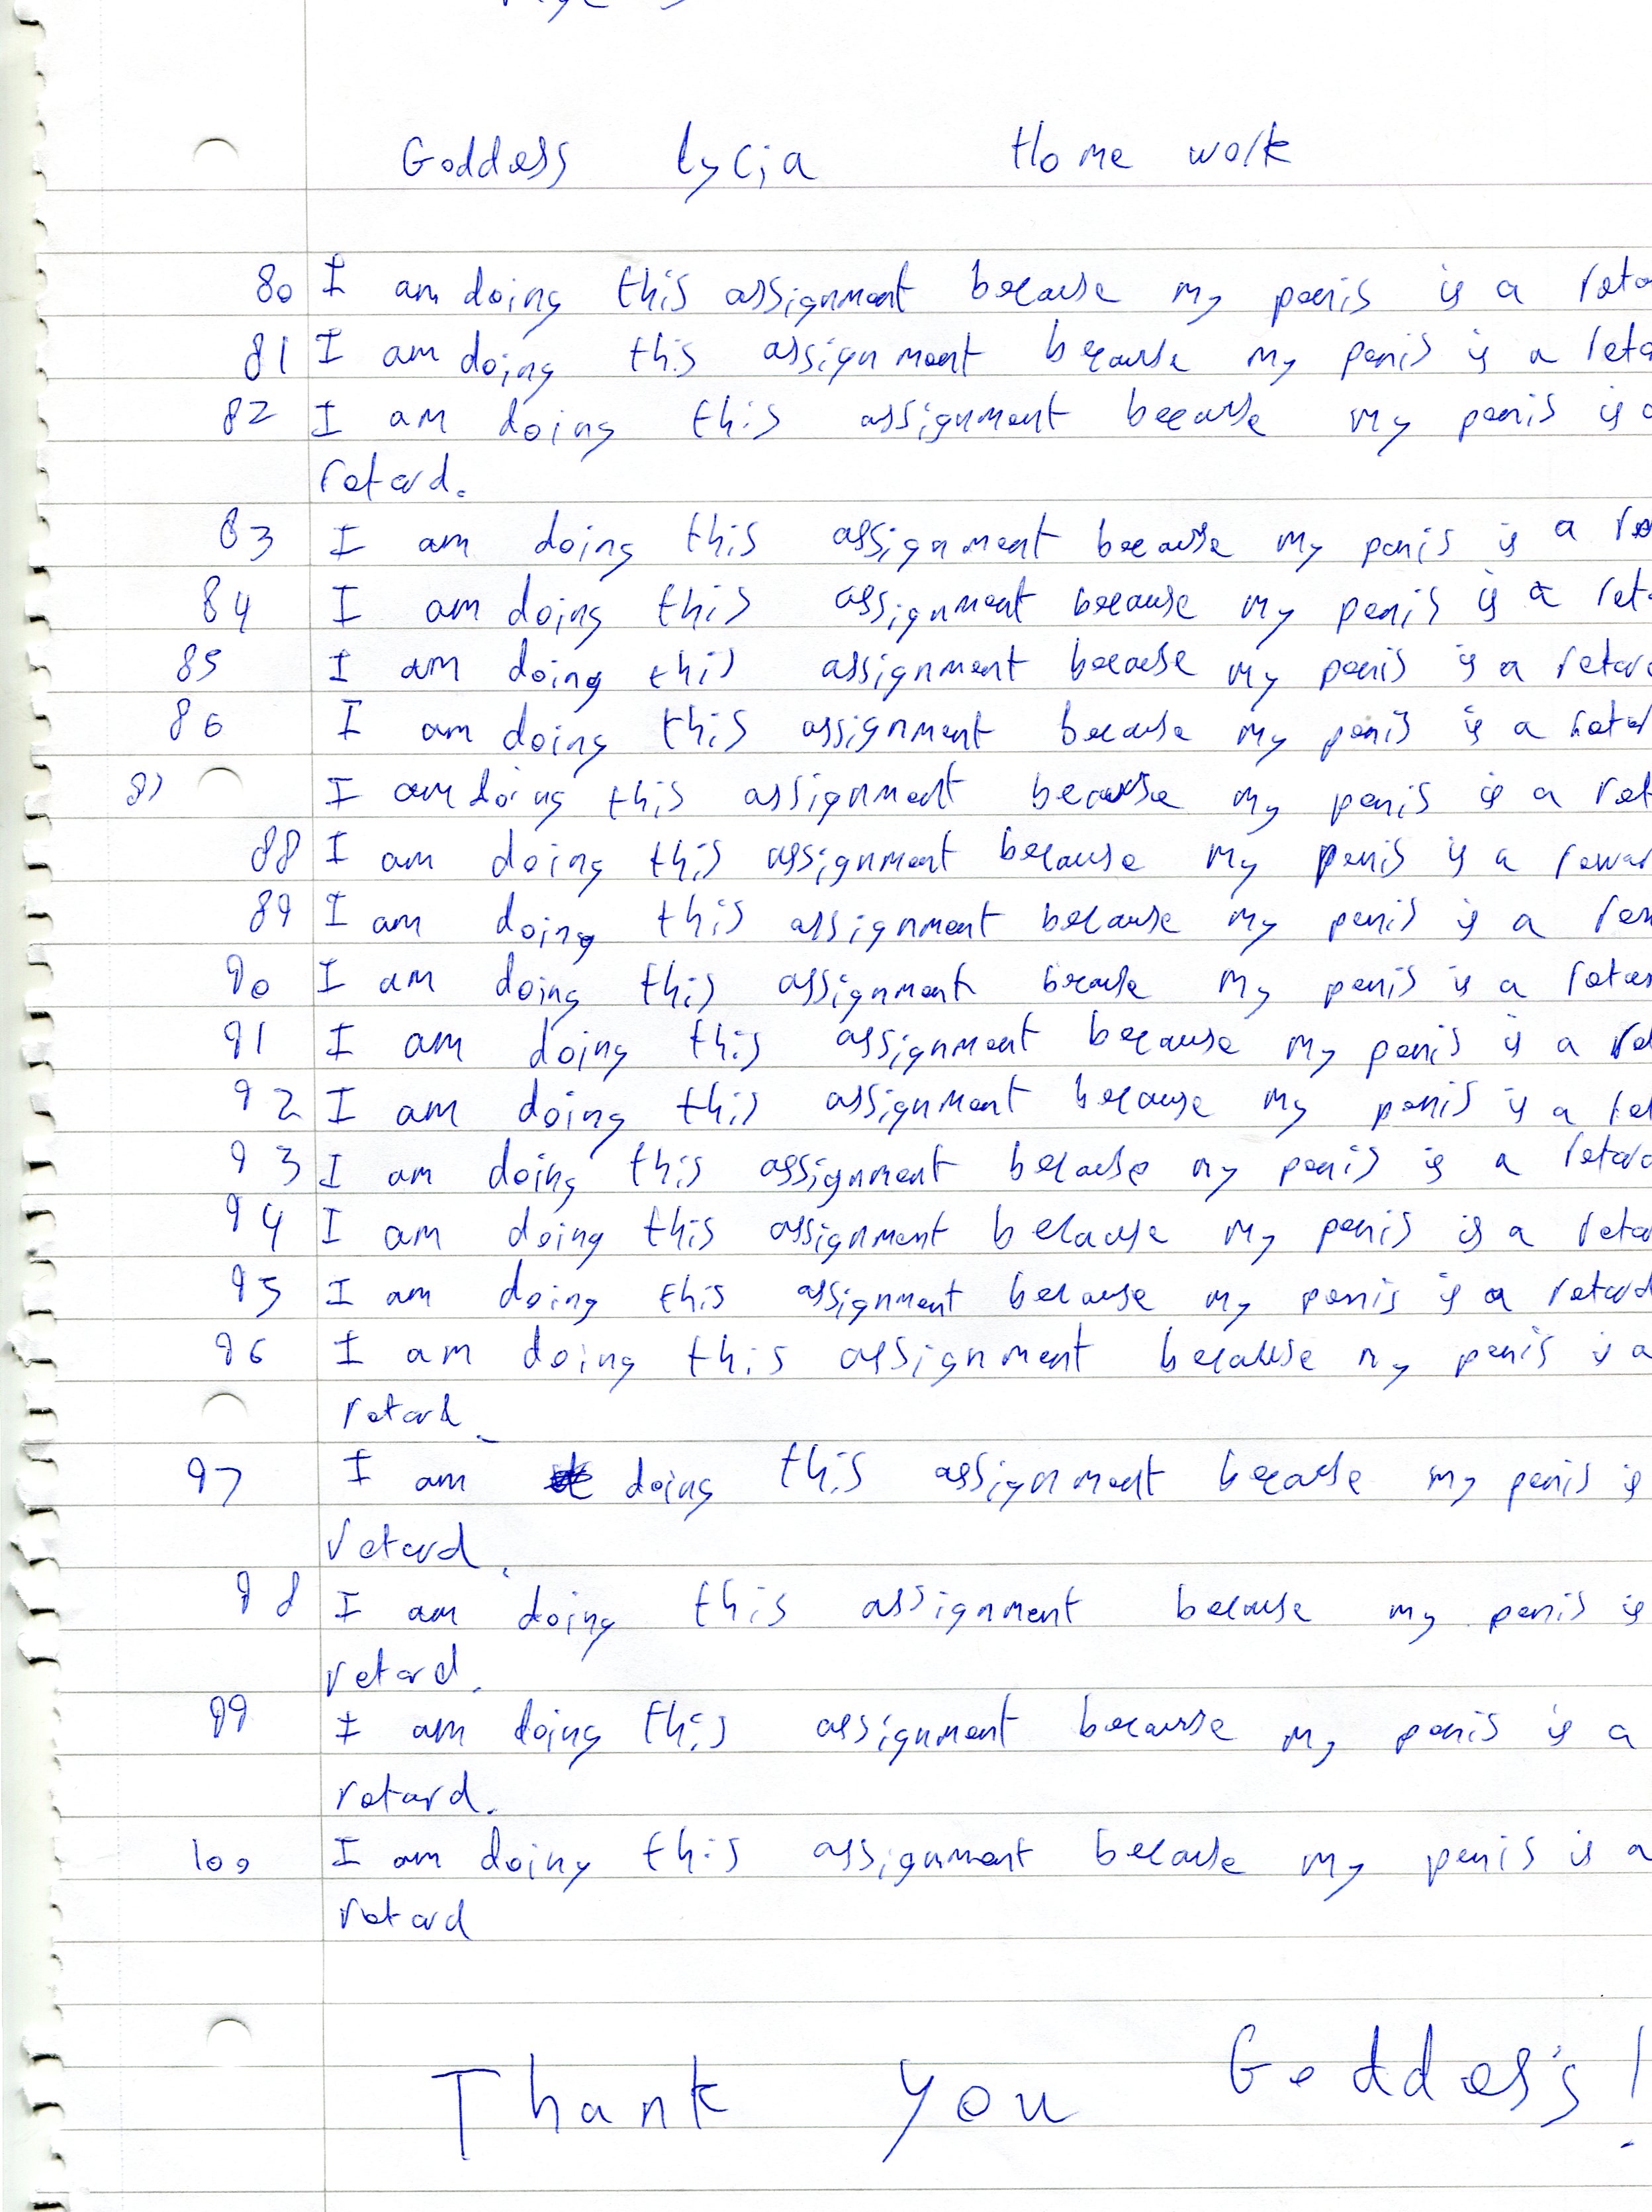 Goddess Lycia Home work
80 I am doing this assignment because my penis is a
81 I am doing this assignment because my penis is a
82 I am doing this assignment because my penis is
retard.
83 I am doing this assignment because my penis is a
84 I am doing this assignment because my penis is a
85 I am doing this assignment because my penis is a
86 I am doing this assignment because my penis is a
87 I am doing this assignment because my penis is a
88 I am doing this assignment because my penis is a
89 I am doing this assignment because my penis is a
90 I am doing this assignment because my penis is a
91 I am doing this assignment because my penis is a
92 I am doing this assignment because my penis is a
93 I am doing this assignment because my penis is a
94 I am doing this assignment because my penis is a
95 I am doing this assignment because my penis is a retard
96 I am doing this assignment because my penis is a
retard.
97 I am doing this assignment because my penis is
retard.
98 I am doing this assignment because my penis is
retard.
99 I am doing this assignment because my penis is a
retard.
100 I am doing this assignment because my penis is a
retard
Thank you Goddess!